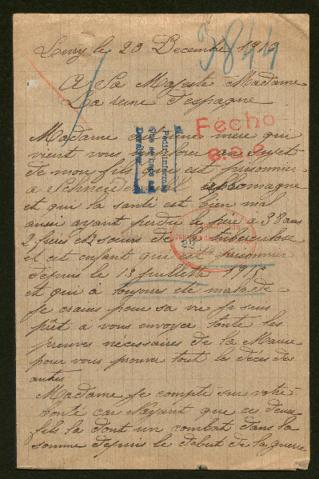 le 20 Decembre
3844
A Sa Majesté Madame
La reine d'espagne
Fecho
Madame c'est une mere qui
vient vous au sujet
de mon fils qui est prisonnier
a
et qui la santé est bien mal
aussi ayant perdu le père a 38 ans
2 frères et 2 soeurs de la tuberculose
et cet enfant qui est prisonnier
depuis le 13 juillet
et qui a toujours été malade
Je crains pour sa vie je suis
prêt a vous envoyer toute les
preuves nécessaires de la Mairie
pour vous prouver tout les décès des
autres
Madame Je compte sur votre
bonté car N'ayant que ces deux
fils la dont un combat dans la
somme depuis le debut de la guerre